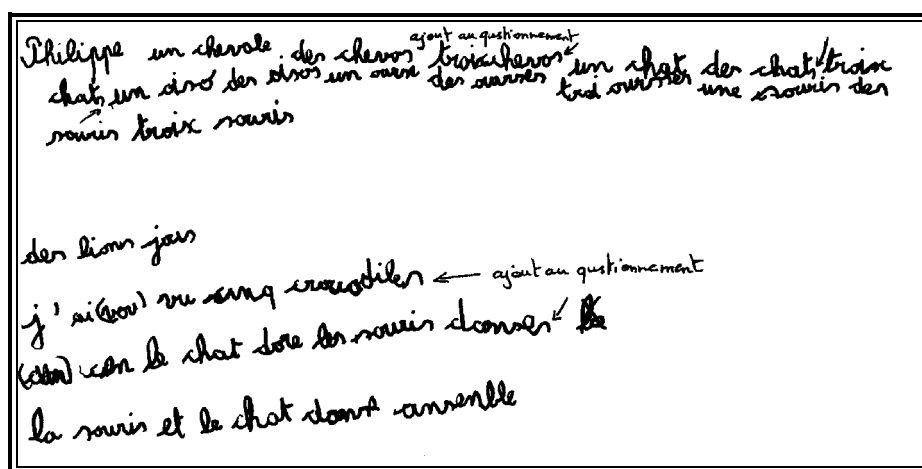 ajout au qustionnement
Philippe un chevale des chevos troixchevos un chat des chats troix
chats un oiso des oisos un ourse des ourses troi ourses une souris des
souris troix souris
des lions jous
j'ai (vou) vu sinq crocodiles ← ajout au qustionnement
can le chat dore les souris danses
la souris et le chat dans ansenble